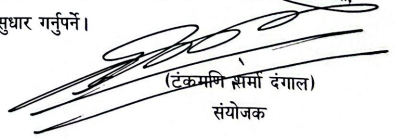 सुधार गर्नुपर्ने।
(टंकमणि शर्मा दंगाल)
संयोजक